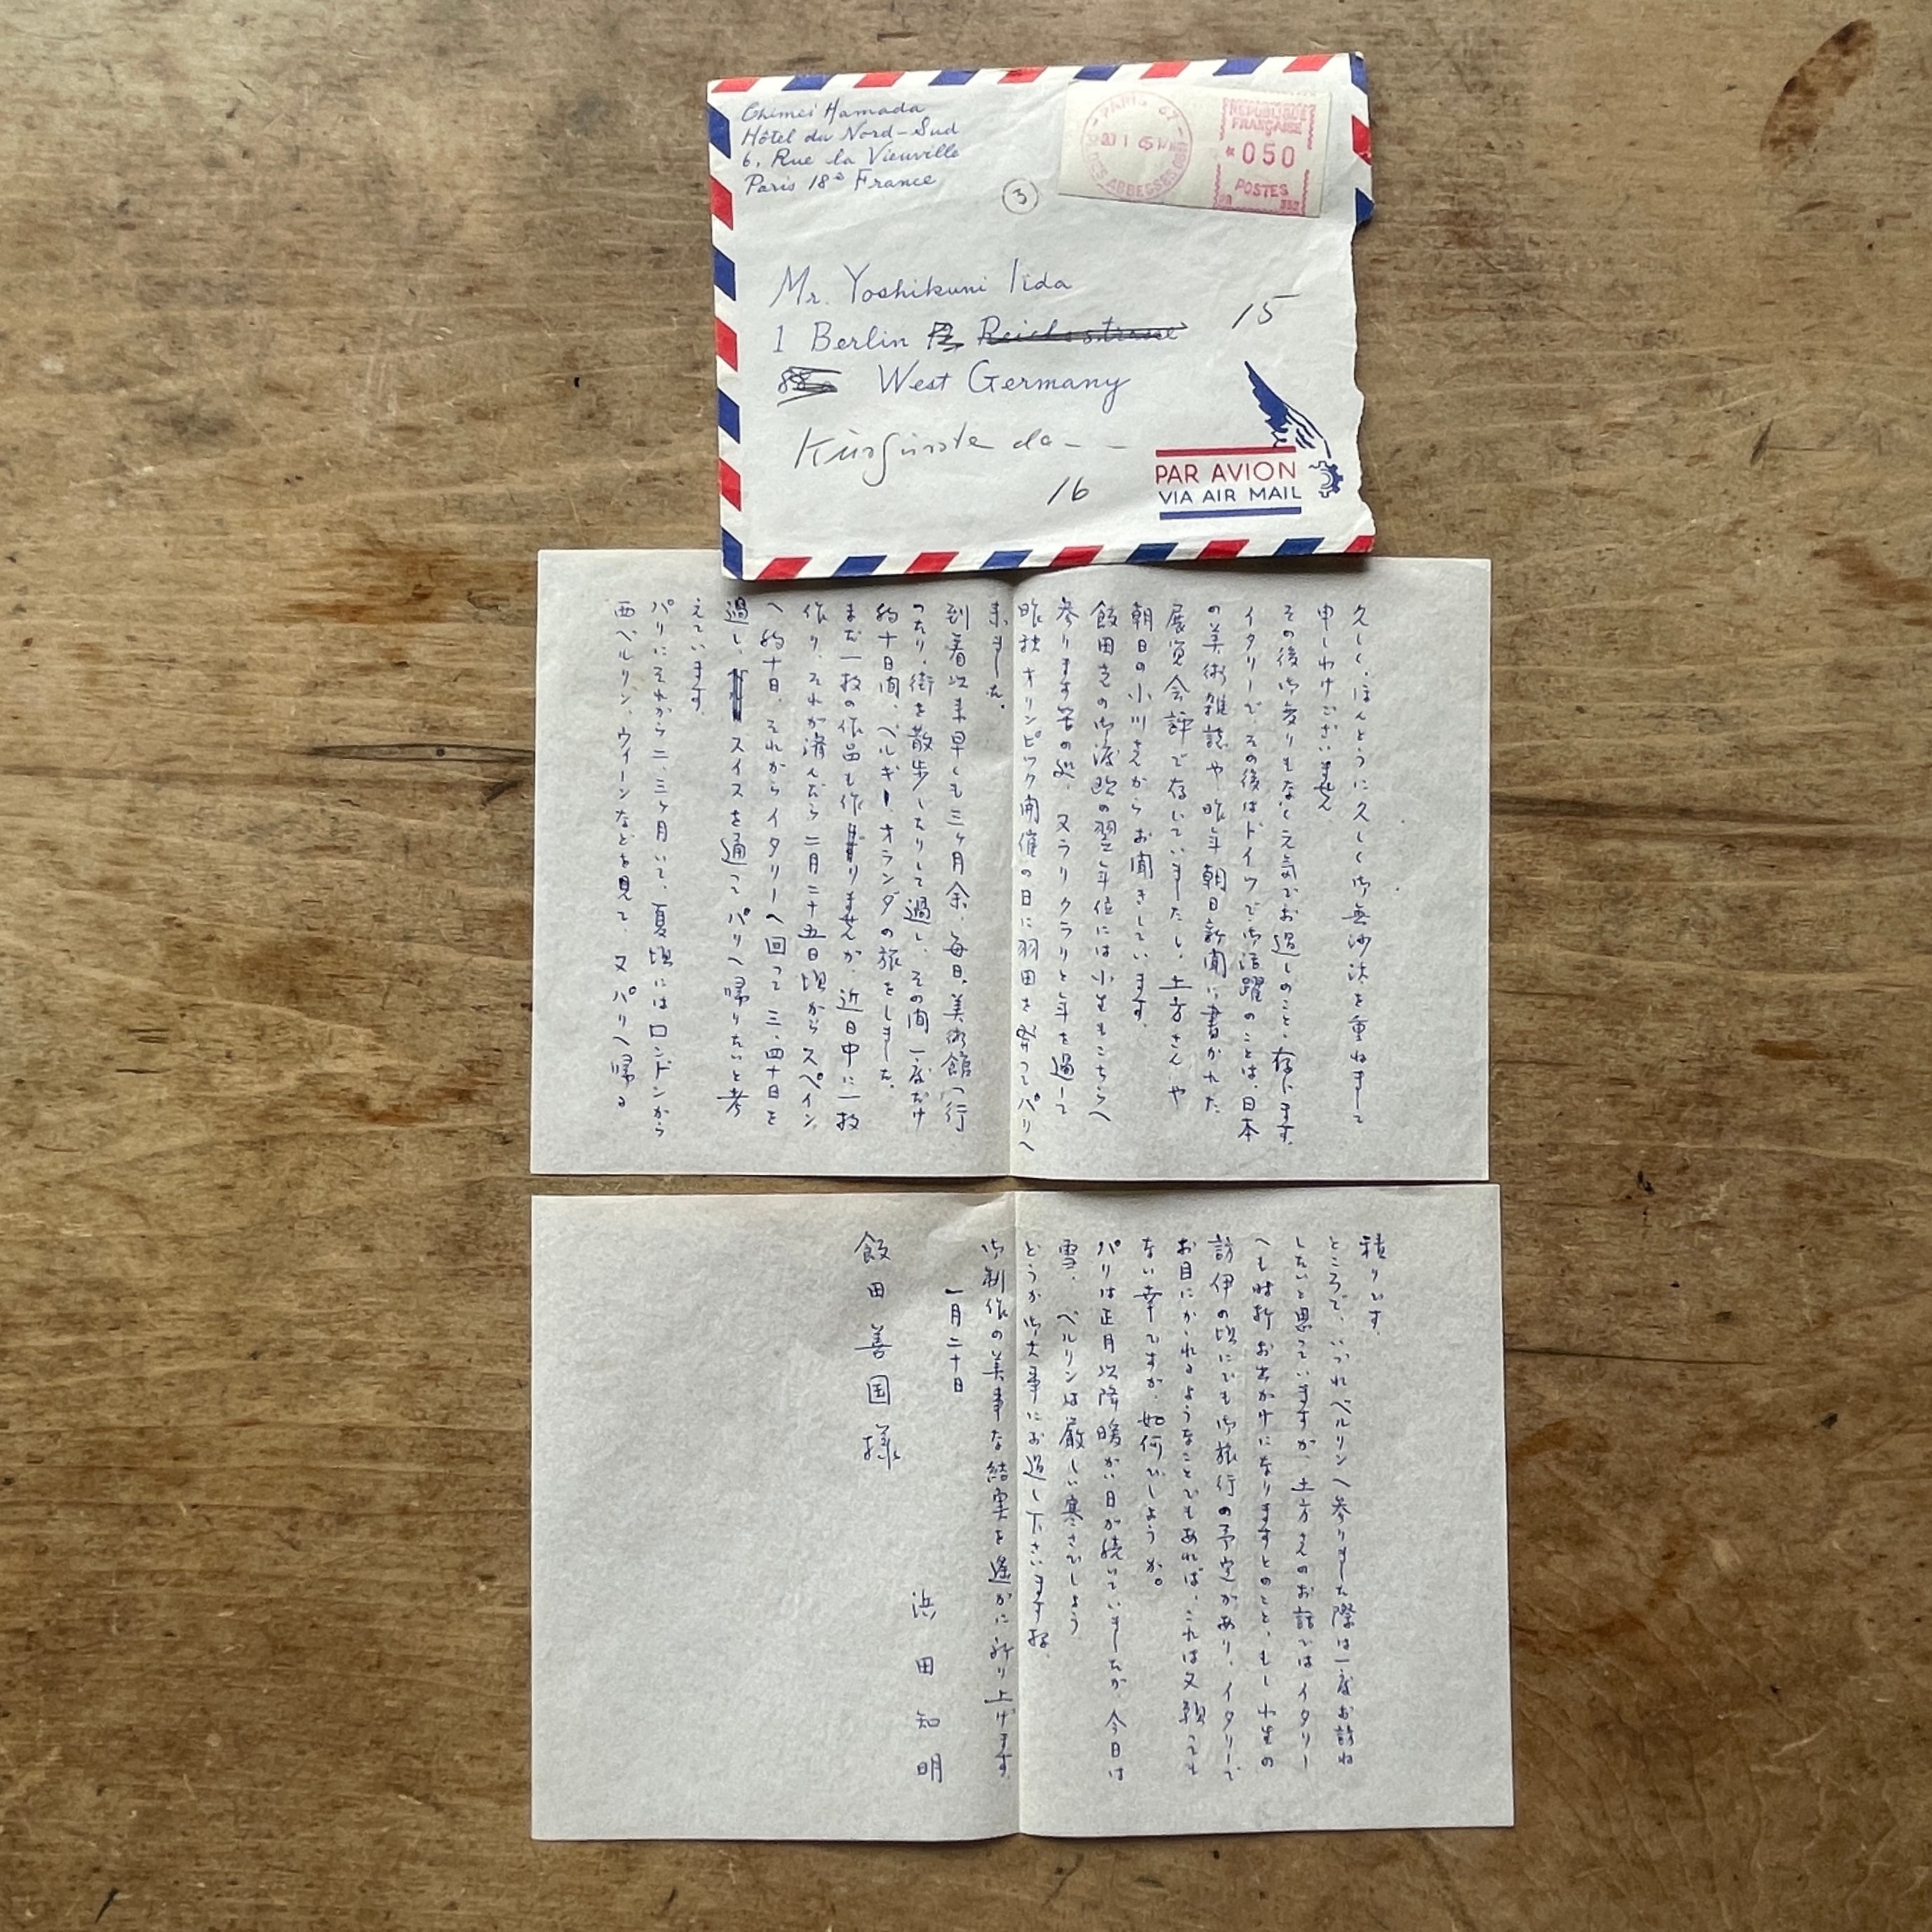 Chimei Hamada
Hôtel du Nord-Sud
6, Rue la Vieuville
Paris 18e France
3
PARIS 67
R. DES ABBESSES
REPUBLIQUE
FRANÇAISE
050
POSTES
Mr. Yoshikuni Iida
15
1 Berlin
West Germany
16
PAR AVION
VIA AIR MAIL
久しく、ほんとうに久しく御無沙汰を重ねまして
申しわけございません
その後御変りもなく元気でお過しのことと存じます。
イタリーで、その後はドイツで御活躍のことは、日本
の美術雑誌や昨年朝日新聞に書かれた
展覧会評で存じていましたし、土方さんや
朝日の小川さんからお聞きしています。
飯田さんの御渡欧の翌年位には小生もこちらへ
参ります筈の処、又ラリクラリと年を過して
昨秋オリンピック開催の日に羽田を発ってパリへ
来ました。
到着以来早くも三ヶ月余、毎日、美術館へ行
ったり、街を散歩したりして過し、その間一度だけ
約十日間、ベルギー、オランダの旅をしました。
まだ一枚の作品も作りませんが、近日中に一枚
作り、それが済んだら二月二十五日頃からスペイン
へ約十日、それからイタリーへ回って三、四十日を
過し、スイスを通ってパリへ帰りたいと考
えています。
パリにそれから二、三ヶ月いて、夏頃にはロンドンから
西ベルリン、ウィーンなどを見て、又パリへ帰る
積りです。
ところで、いづれベルリンへ参りました際は一度お訪ね
したいと思っていますが、土方さんのお話ではイタリー
へも時折お出かけになりますとのこと、もし小生の
訪伊の頃にでも御旅行の予定があり、イタリーで
お目にかゝれるようなことでもあれば、これは又願っても
ない幸ですが、如何でしょうか。
パリは正月以降暖かい日が続いていましたが、今日は
雪、ベルリンは厳しい寒さでしょう
どうか御大事にお過し下さいます様、
御制作の美事な結実を遙かに祈り上げます。
一月二十日
浜田知明
飯田善国様